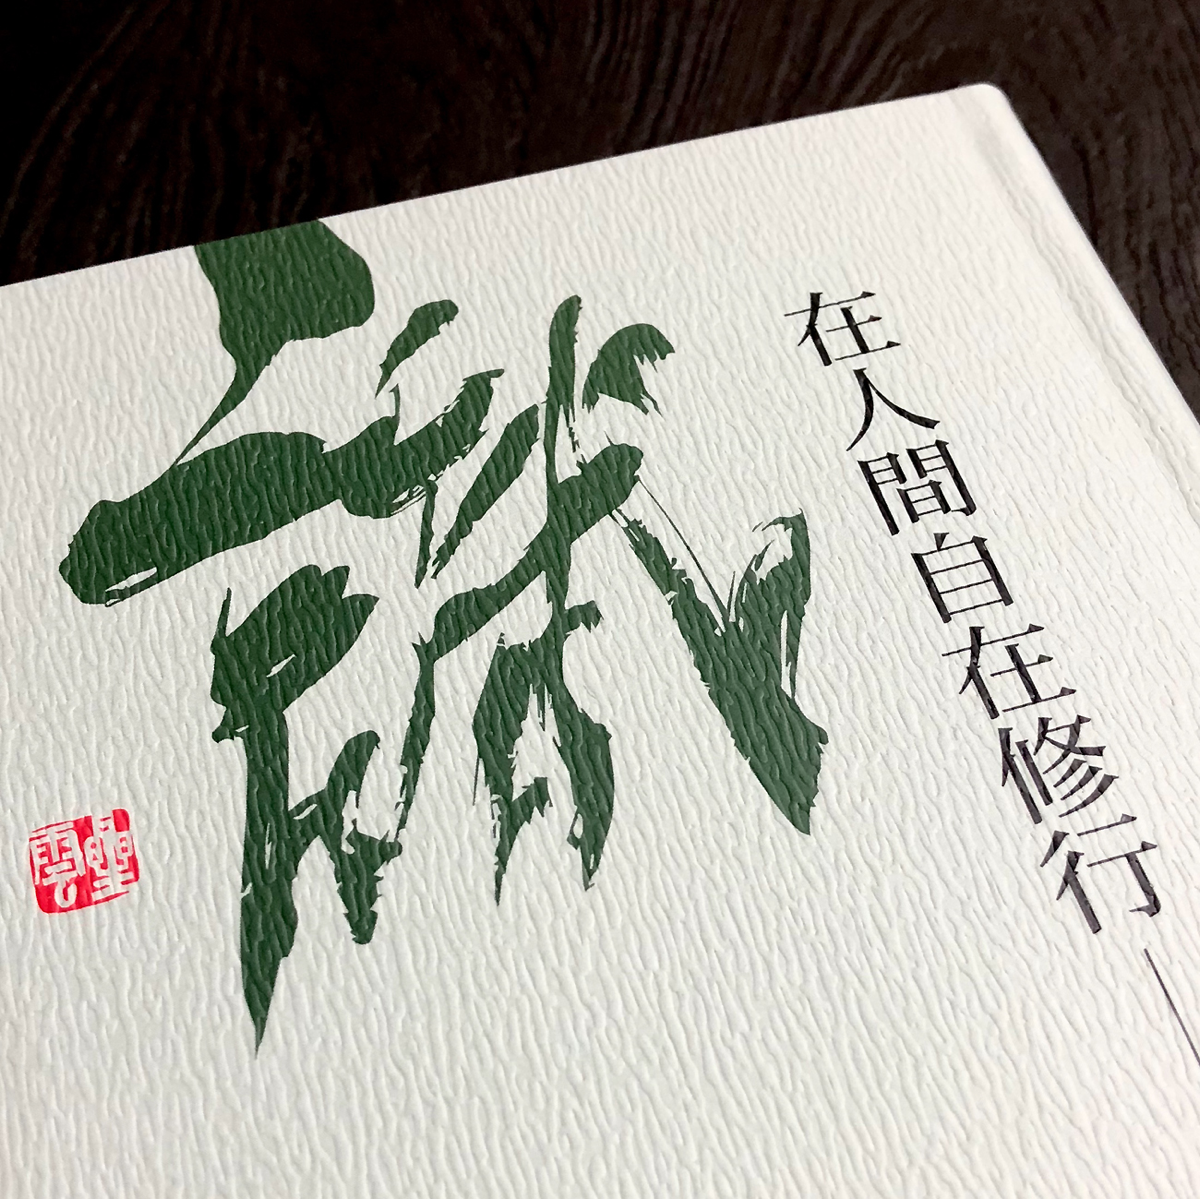 在人間自在修行—
識